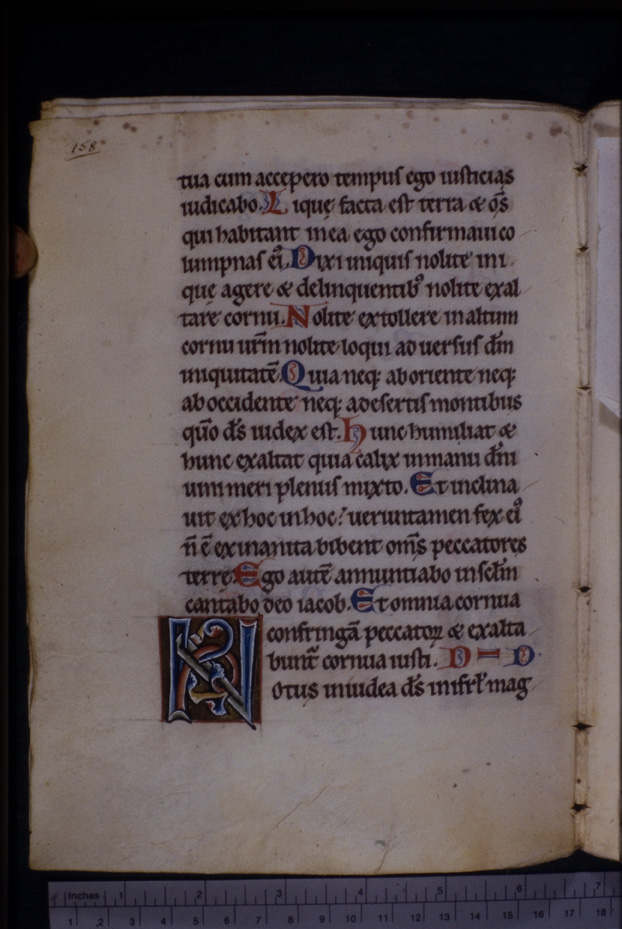 158
tua cum accepero tempus ego iusticias
iudicabo. Liquę facta est terra & om̄s
qui habitant in ea ego confirmaui co
lumpnas ei᷒. Dixi iniquis nolite ini
que agere & delinquentib᷒ nolite exal
tare cornu. Nolite extollere in altum
cornu ur̄m nolite loqui aduersus dm̄
iniquitatē. Quia neq; ab oriente neq;
ab occidente neq; a desertis montibus
quō ds̄ iudex est. Hunc humiliat &
hunc exaltat quia calix in manu dn̄i
uini meri plenus mixto. Et inclina
uit ex hoc in hoc: ueruntamen fex ei᷒
n̄ ē exinanita bibent om̄s peccatores
terrę. Ego autē annuntiabo in sc̄lm
cantabo deo iacob. Et omnia cornua
confringā peccatoꝝ & exalta
bunt̄ cornua iusti. D — D
Notus in iudea ds̄ in isrl̄ mag
Inches 1 2 3 4 5 6 7
1 2 3 4 5 6 7 8 9 10 11 12 13 14 15 16 17 18